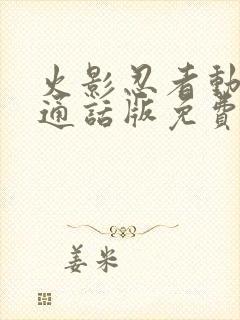 火影忍者動
通話版免費
姜米